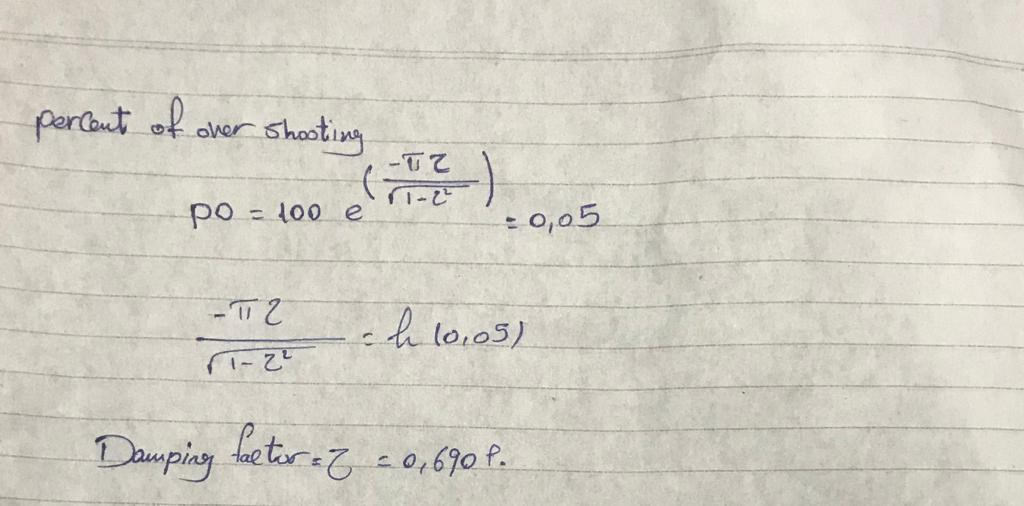 percent of over shooting
PO = 100 e^(-πζ / √1-ζ²) = 0,05
-πζ / √1-ζ² = ln (0,05)
Damping factor = ζ = 0,690